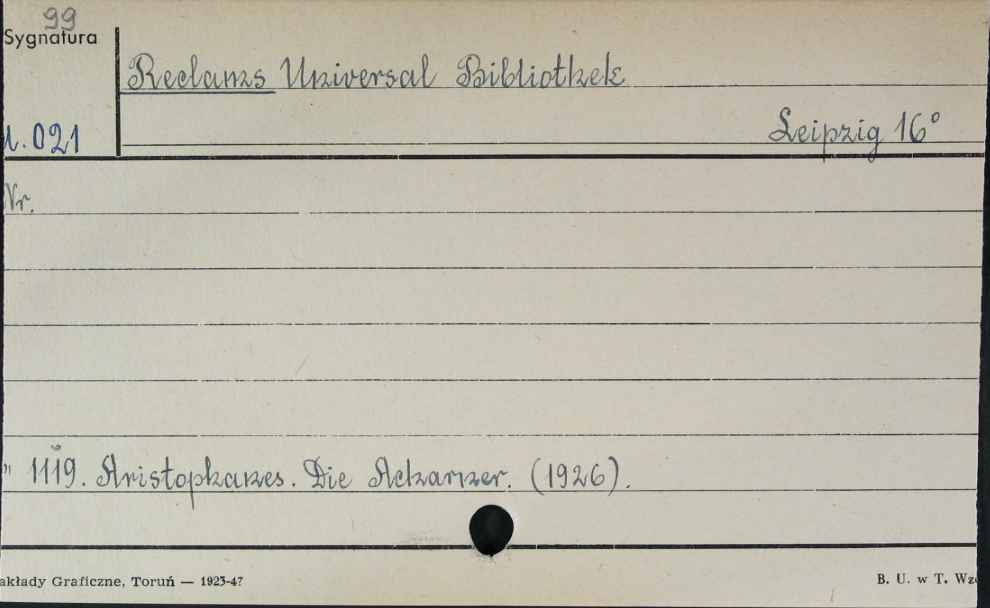 99
Sygnatura
Reclams Universal Bibliothek
021
Leipzig 16°
Nr.
" 1119. Aristophanes. Die Acharner. (1926).
akłady Graficzne, Toruń — 1923-47
B. U. w T. Wz